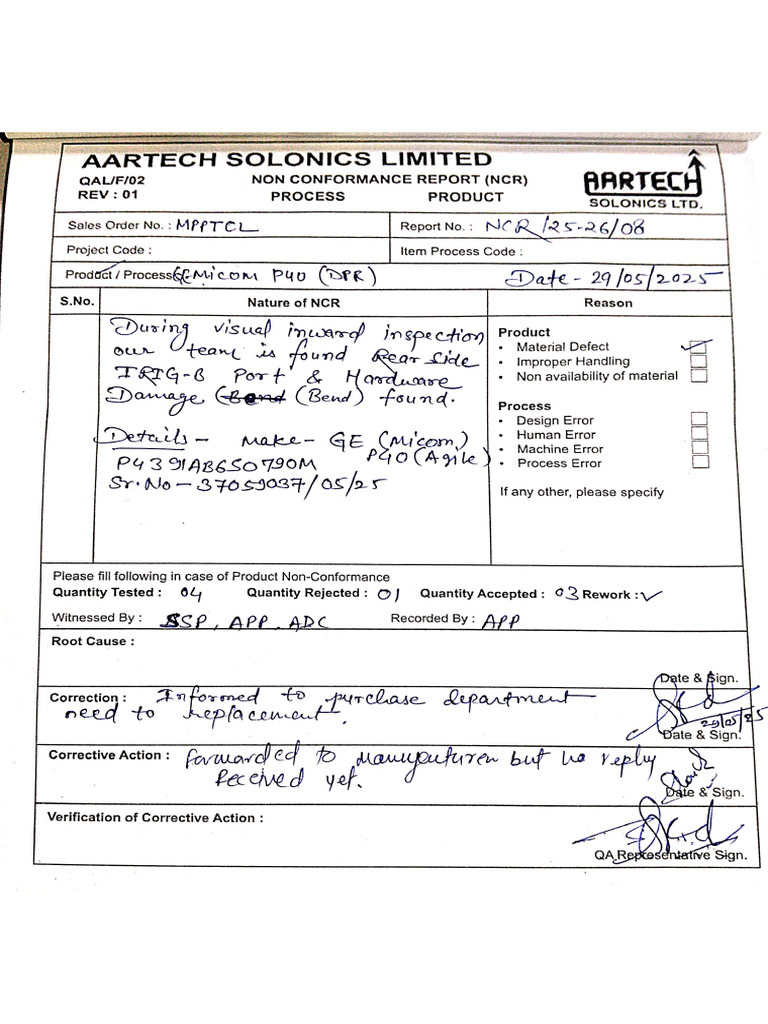 AARTECH SOLONICS LIMITED
QAL/F/02 NON CONFORMANCE REPORT (NCR)
REV : 01 PROCESS PRODUCT
AARTECH
SOLONICS LTD.
Sales Order No. : MPPTCL Report No. : NCR/25-26/08
Project Code : Item Process Code :
Product / Process GE Micom P40 (DPR) Date - 29/05/2025
S.No. Nature of NCR Reason
During visual inward inspection
our team is found Rear side
IRIG-B Port & Hardware
Damage (Bend) found.
Details - make - GE (Micom)
P40 (Agile)
P4391AB6S0790M
Sr. No - 37059037/05/25
Product
• Material Defect ✓
• Improper Handling
• Non availability of material
Process
• Design Error
• Human Error
• Machine Error
• Process Error
If any other, please specify
Please fill following in case of Product Non-Conformance
Quantity Tested : 04 Quantity Rejected : 01 Quantity Accepted : 03 Rework : ✓
Witnessed By : SSP, APP, ADC Recorded By : APP
Root Cause :
Date & Sign.
Correction : Informed to purchase department
need to replacement.
29/05/25
Date & Sign.
Corrective Action : forwarded to manufuturer but no reply
received yet.
Date & Sign.
Verification of Corrective Action :
QA Representative Sign.